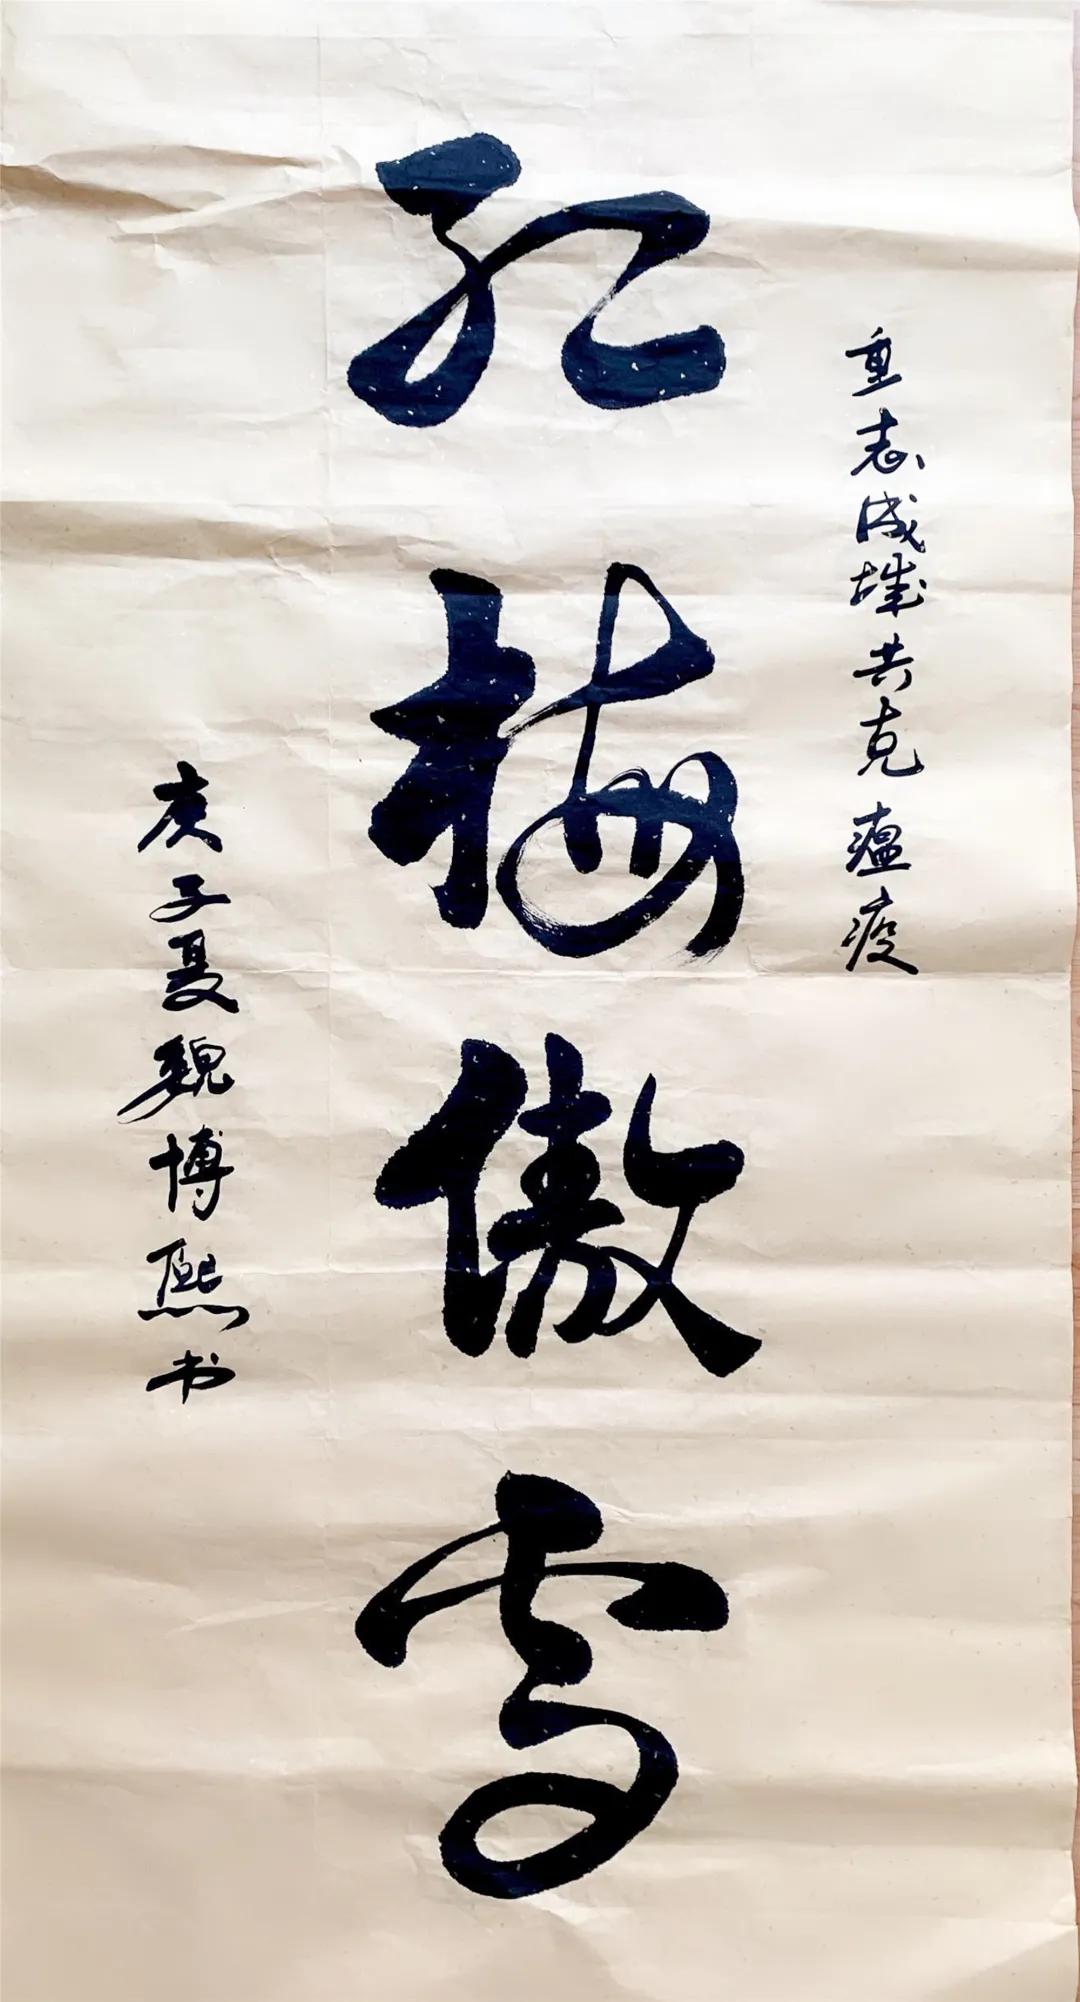 重志成城共克瘟疫
红梅傲雪
庚子夏魏博熙书